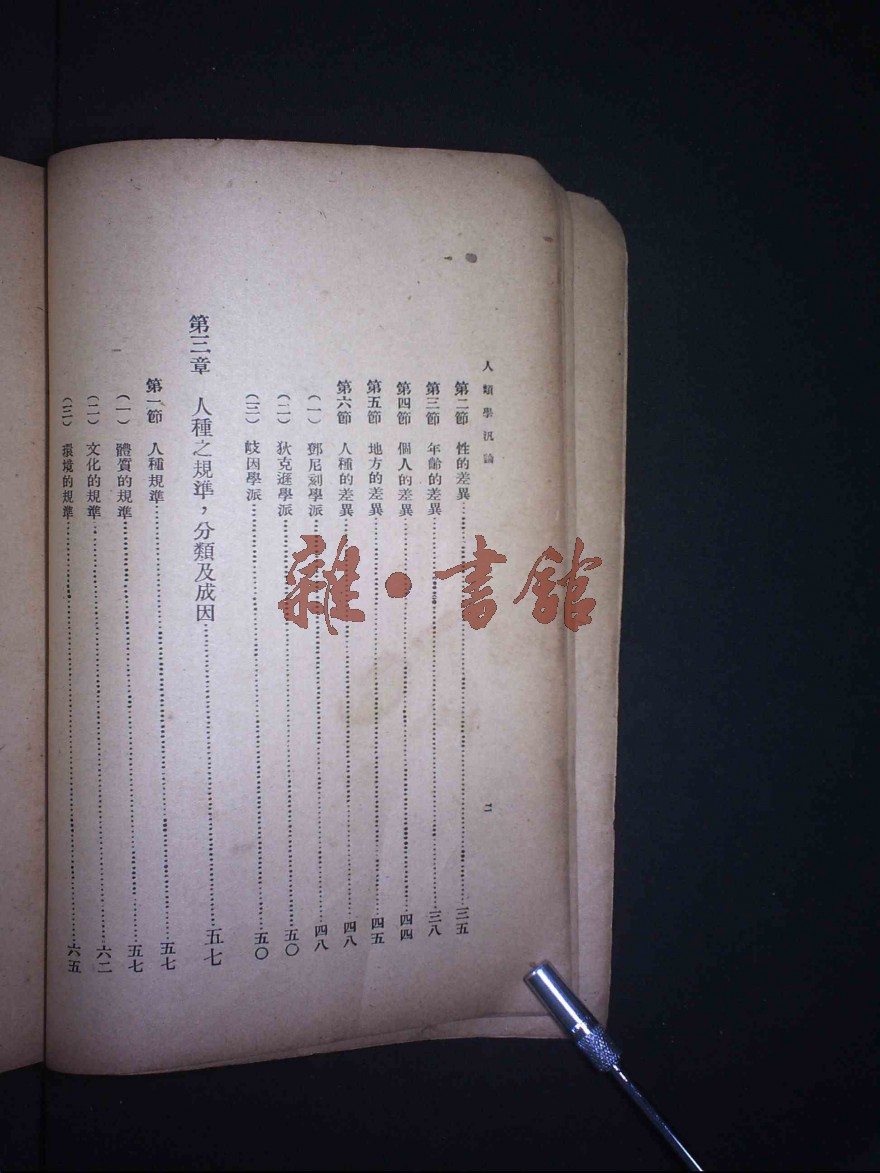 人類學汎論
二
第二節 性的差異……三五
第三節 年齡的差異……三八
第四節 個人的差異……四四
第五節 地方的差異……四五
第六節 人種的差異……四八
（一） 鄧尼刻學派……四八
（二） 狄克遜學派……五〇
（三） 岐因學派……五〇
第三章 人種之規準，分類及成因……五七
第一節 人種規準……五七
（一） 體質的規準……五七
（二） 文化的規準……六二
（三） 環境的規準……六五
雜·書館